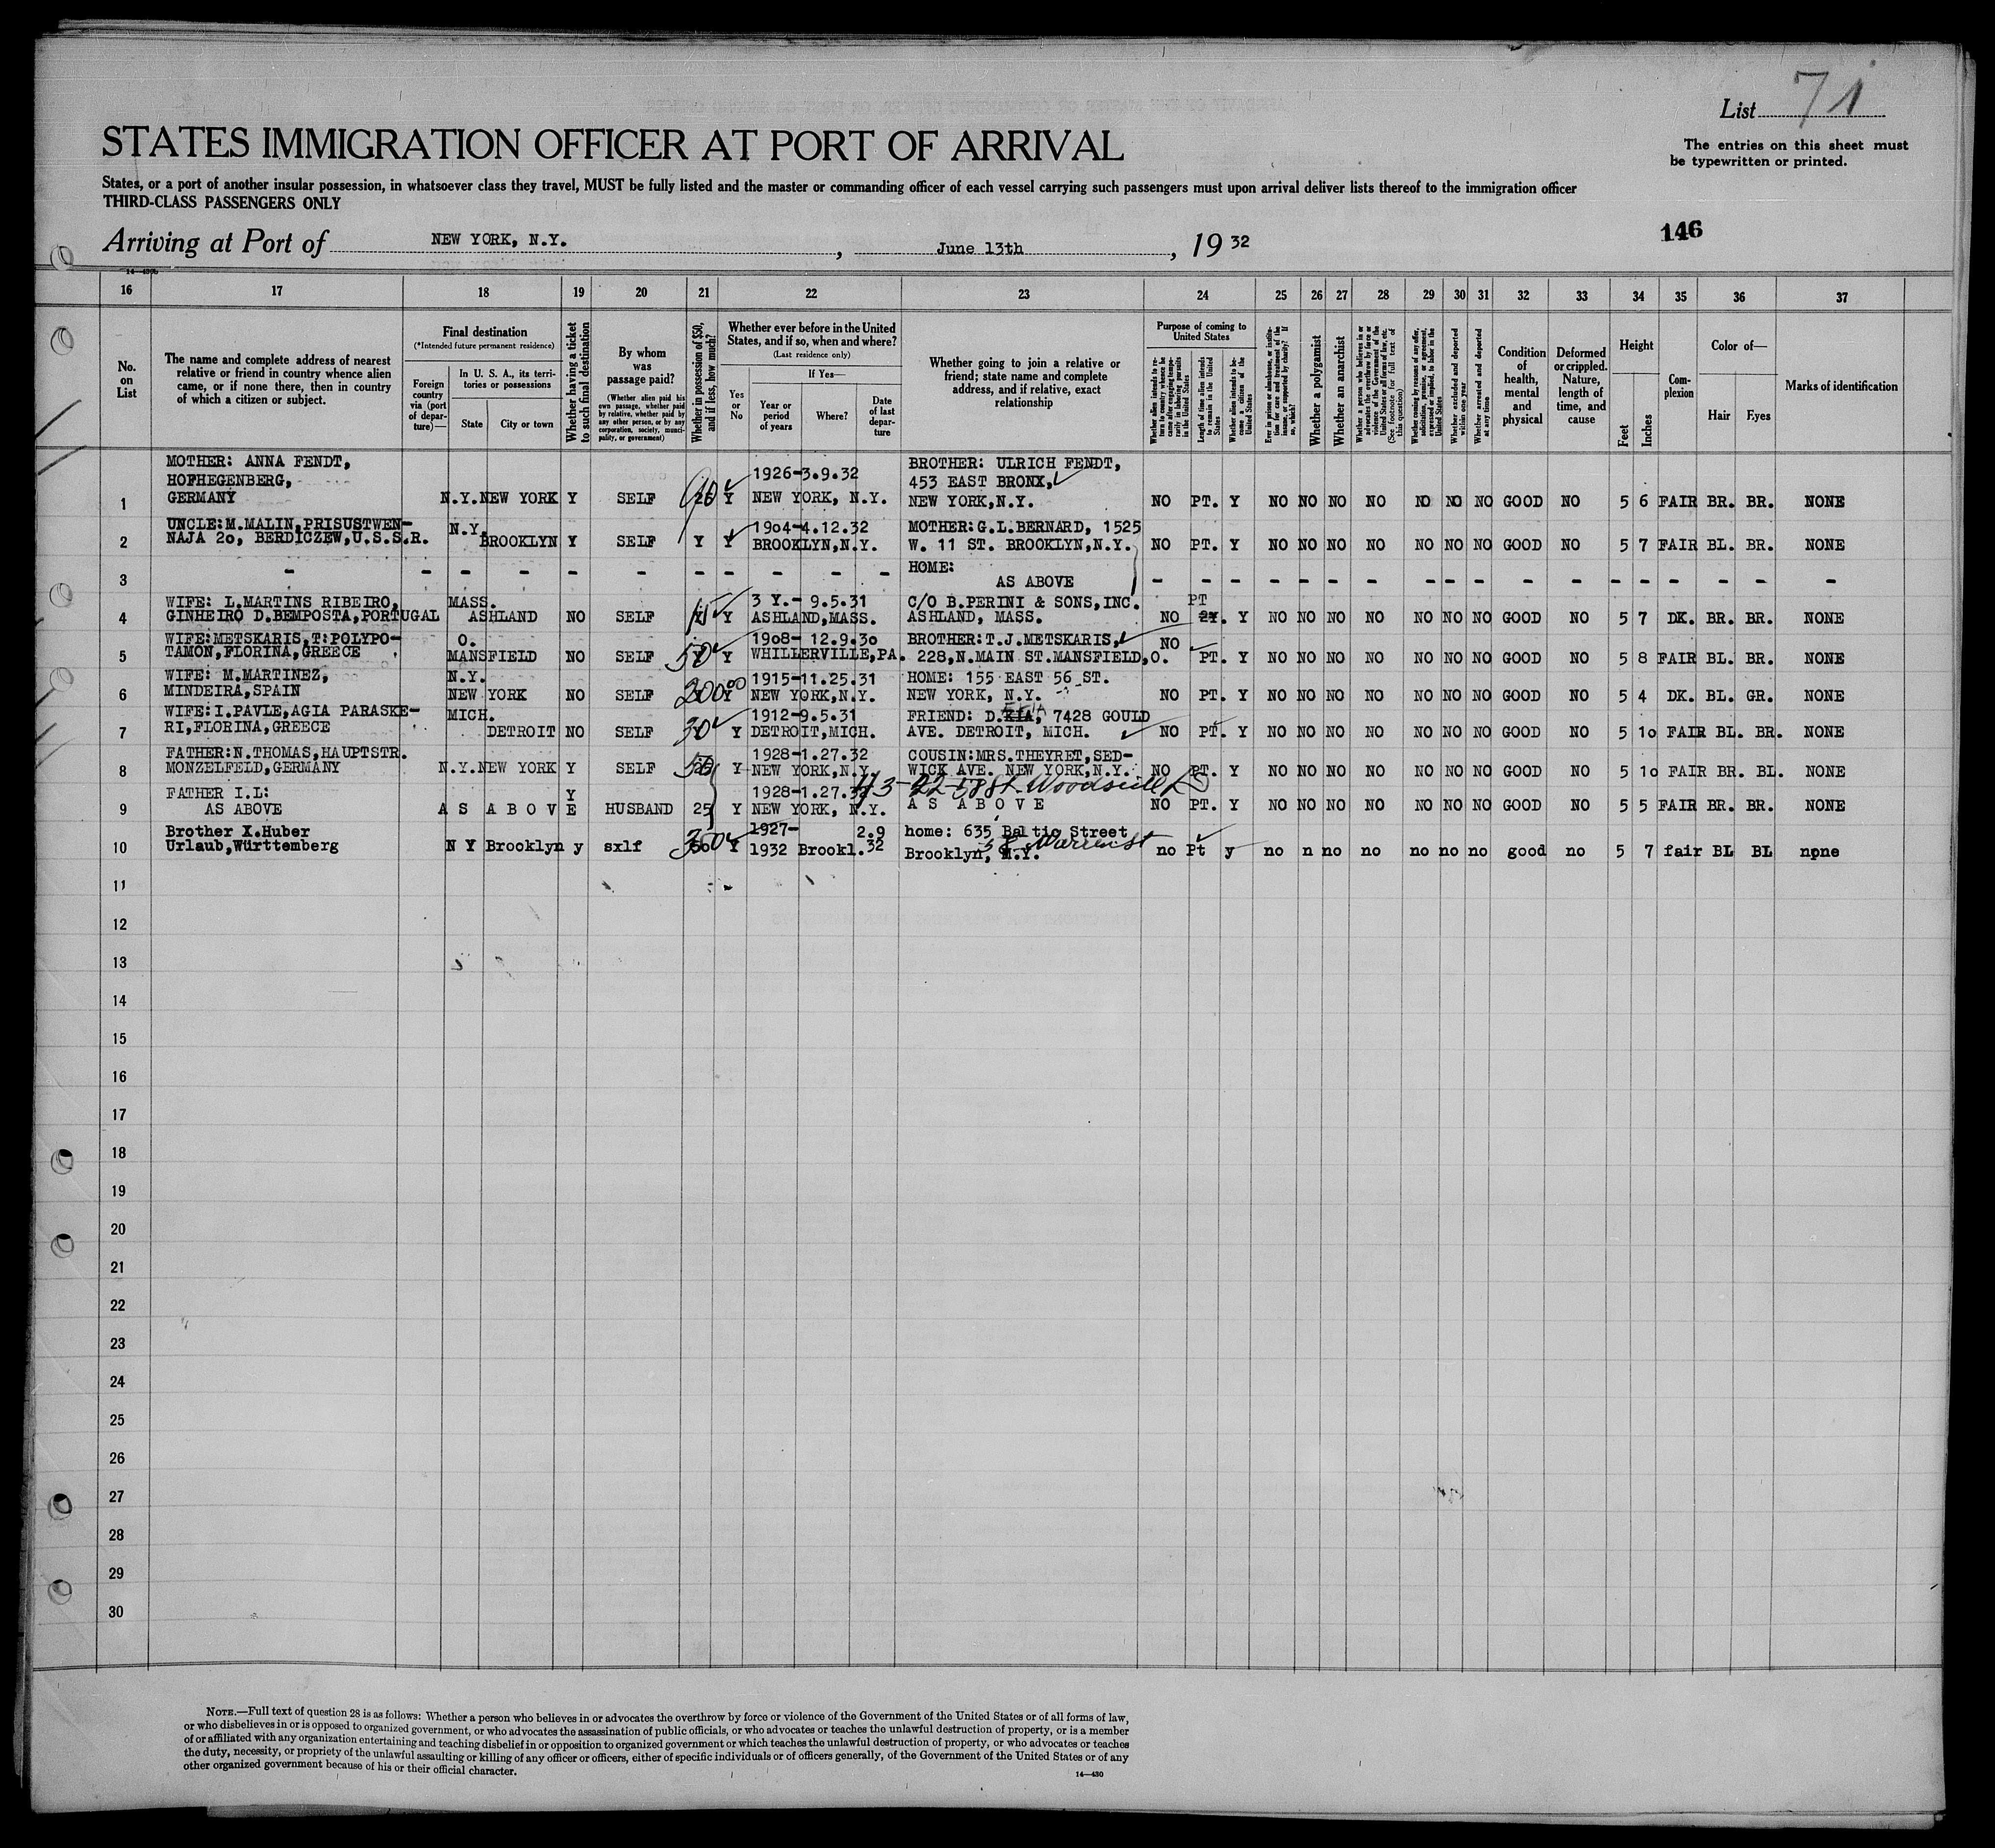 List 71
The entries on this sheet must
be typewritten or printed.
STATES IMMIGRATION OFFICER AT PORT OF ARRIVAL
States, or a port of another insular possession, in whatsoever class they travel, MUST be fully listed and the master or commanding officer of each vessel carrying such passengers must upon arrival deliver lists thereof to the immigration officer
THIRD-CLASS PASSENGERS ONLY
146
Arriving at Port of NEW YORK, N.Y. , June 13th , 19 32
16 17 18 19 20 21 22 23 24 25 26 27 28 29 30 31 32 33 34 35 36 37
No. on List
The name and complete address of nearest
relative or friend in country whence alien
came, or if none there, then in country
of which a citizen or subject.
Final destination
(*Intended future permanent residence)
Foreign country via (port of departure)—
In U. S. A., its territories or possessions
State
City or town
Whether having a ticket to such final destination
By whom was passage paid?
(Whether alien paid his own passage, whether paid by relative, whether paid by any other person, or by any corporation, society, municipality, or government)
Whether in possession of $50, and if less, how much?
Whether ever before in the United States, and if so, when and where?
(Last residence only)
Yes or No
If Yes—
Year or period of years
Where?
Date of last departure
Whether going to join a relative or
friend; state name and complete
address, and if relative, exact
relationship
Purpose of coming to United States
Whether alien intends to return to country whence he came after engaging temporarily in laboring pursuits in the United States
Length of time alien intends to remain in the United States
Whether alien intends to become a citizen of the United States
Ever in prison or almshouse, or institution for care and treatment of the insane, or supported by charity? If so, which?
Whether a polygamist
Whether an anarchist
Whether a person who believes in or advocates the overthrow by force or violence of the Government of the United States or all forms of law, etc. (See footnote for full text of this question)
Whether coming by reasons of any offer, solicitation, promise, or agreement, expressed or implied, to labor in the United States
Whether excluded and deported within one year
Whether arrested and deported at any time
Condition of health, mental and physical
Deformed or crippled. Nature, length of time, and cause
Height
Feet
Inches
Complexion
Color of—
Hair
Eyes
Marks of identification
MOTHER: ANNA FENDT, 1926-3.9.32 BROTHER: ULRICH FENDT,
HOFHEGENBERG, 453 EAST BRONX,
1 GERMANY N.Y. NEW YORK Y SELF 90 Y NEW YORK, N.Y. NEW YORK, N.Y. NO PT. Y NO NO NO NO NO NO NO GOOD NO 5 6 FAIR BR. BR. NONE
UNCLE:M.MALIN,PRISUSTWEN- N.Y. 1904-4.12.32 MOTHER:G.L.BERNARD, 1525
2 NAJA 20, BERDICZEW,U.S.S.R. BROOKLYN Y SELF Y Y BROOKLYN,N.Y. W. 11 ST. BROOKLYN,N.Y. NO PT. Y NO NO NO NO NO NO NO GOOD NO 5 7 FAIR BL. BR. NONE
HOME:
3 - - - - - - - - - - - AS ABOVE - - - - - - - - - - - - - - - - - -
WIFE: L.MARTINS RIBEIRO, MASS. 3 Y.- 9.5.31 C/O B.PERINI & SONS,INC. PT
4 GINHEIRO D.BEMPOSTA,PORTUGAL ASHLAND NO SELF 15 Y ASHLAND,MASS. ASHLAND, MASS. NO 2Y. Y NO NO NO NO NO NO NO GOOD NO 5 7 DK. BR. BR. NONE
WIFE:METSKARIS,T:POLYPO- O. 1908- 12.9.30 BROTHER:T.J.METSKARIS, NO
5 TAMON,FLORINA,GREECE MANSFIELD NO SELF 50 Y WHILLERVILLE,PA. 228,N.MAIN ST.MANSFIELD,O. PT. Y NO NO NO NO NO NO NO GOOD NO 5 8 FAIR BL. BR. NONE
WIFE: M.MARTINEZ, N.Y. 1915-11.25.31 HOME: 155 EAST 56 ST.
6 MINDEIRA,SPAIN NEW YORK NO SELF 200 00 Y NEW YORK,N.Y. NEW YORK, N.Y. NO PT. Y NO NO NO NO NO NO NO GOOD NO 5 4 DK. BL. GR. NONE
WIFE:I.PAVLE,AGIA PARASKE- MICH. 1912-9.5.31 FRIEND: D. , 7428 GOULD
7 RI,FLORINA,GREECE DETROIT NO SELF 30 Y DETROIT,MICH. AVE. DETROIT, MICH. NO PT. Y NO NO NO NO NO NO NO GOOD NO 5 10 FAIR BL. BR. NONE
FATHER:N.THOMAS,HAUPTSTR. 1928-1.27.32 COUSIN:MRS.THEYRET,SED-
8 MONZELFELD,GERMANY N.Y. NEW YORK Y SELF 50 Y NEW YORK,N.Y. WICK AVE. NEW YORK,N.Y. NO PT. Y NO NO NO NO NO NO NO GOOD NO 5 10 FAIR BR. BL. NONE
43-22-58 St Woodside L I
FATHER I.L: Y 1928-1.27.32
9 AS ABOVE A S A B O V E HUSBAND 25 Y NEW YORK, N.Y. A S A B O V E NO PT. Y NO NO NO NO NO NO NO GOOD NO 5 5 FAIR BR. BR. NONE
Brother X.Huber 1927- 2.9 home: 635 Baltic Street
10 Urlaub,Württemberg N Y Brooklyn y sxlf 350 Y 1932 Brookl.32 Brooklyn, N.Y. 58 Warren St no Pt y no n no no no no no good no 5 7 fair BL BL npne
11
12
13
14
15
16
17
18
19
20
21
22
23
24
25
26
27
28
29
30
NOTE.—Full text of question 28 is as follows: Whether a person who believes in or advocates the overthrow by force or violence of the Government of the United States or of all forms of law,
or who disbelieves in or is opposed to organized government, or who advocates the assassination of public officials, or who advocates or teaches the unlawful destruction of property, or is a member
of or affiliated with any organization entertaining and teaching disbelief in or opposition to organized government or which teaches the unlawful destruction of property, or who advocates or teaches
the duty, necessity, or propriety of the unlawful assaulting or killing of any officer or officers, either of specific individuals or of officers generally, of the Government of the United States or of any
other organized government because of his or their official character.
14—430